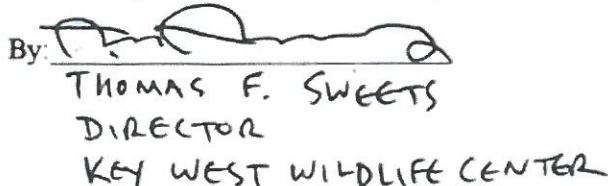 By:
THOMAS F. SWEETS
DIRECTOR
KEY WEST WILDLIFE CENTER